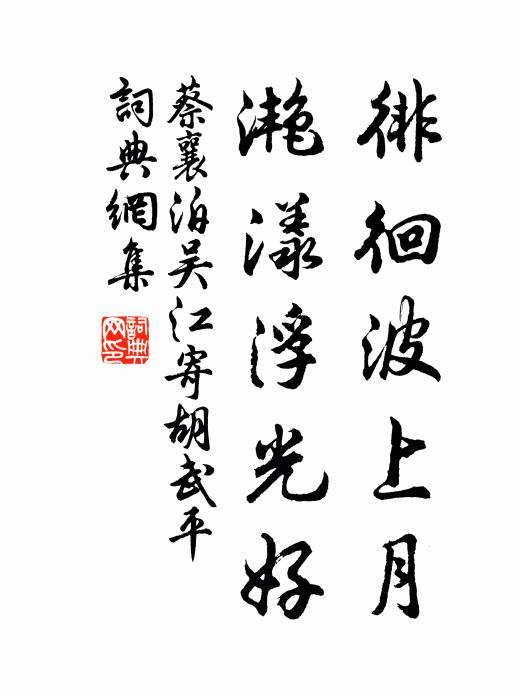 徘徊波上月
灔漾浮光好
蔡襄泊吴江寄胡武平
詞典網集
詞典网印